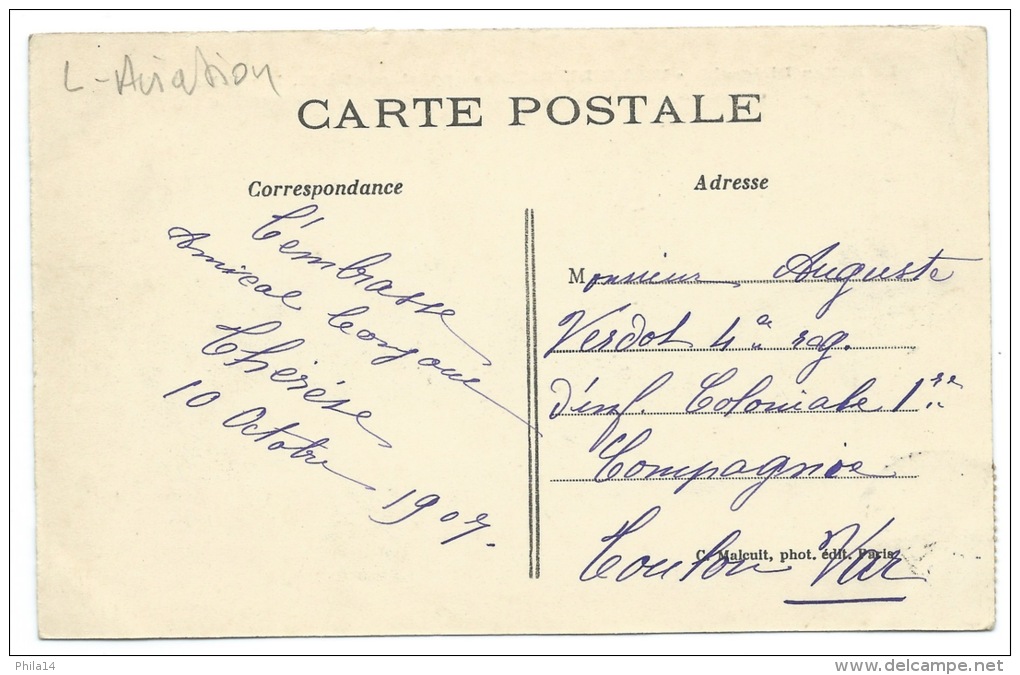 L-Aviation
CARTE POSTALE
Correspondance
Adresse
t'embrasse
Amical bonjour
Thérèse
10 Octobre 1907.
Monsieur Auguste
Verdot 4e reg.
d'inf. Coloniale 1re
Compagnie
Toulon Var
C. Malcuit, phot. édit. Paris
Phila14
www.delcampe.net